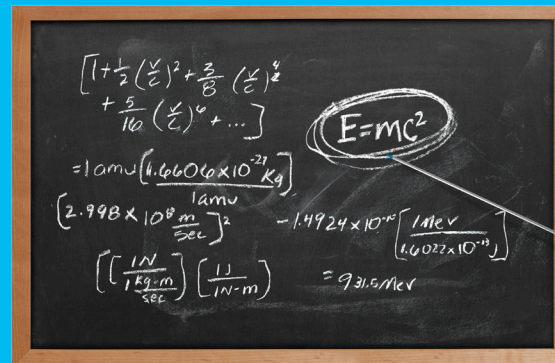 [1+1/2(v/c)²+3/8(v/c)⁴
+5/16(v/c)⁶+...]
E=mc²
=1amu[1.6606x10⁻²⁷Kg/1amu]
[2.998x10⁸ m/sec]²
-1.4924x10⁻¹⁰[1Mev/1.6022x10⁻¹³J]
[[1N/1 kg-m/sec][1J/1N-m]
=931.5Mev